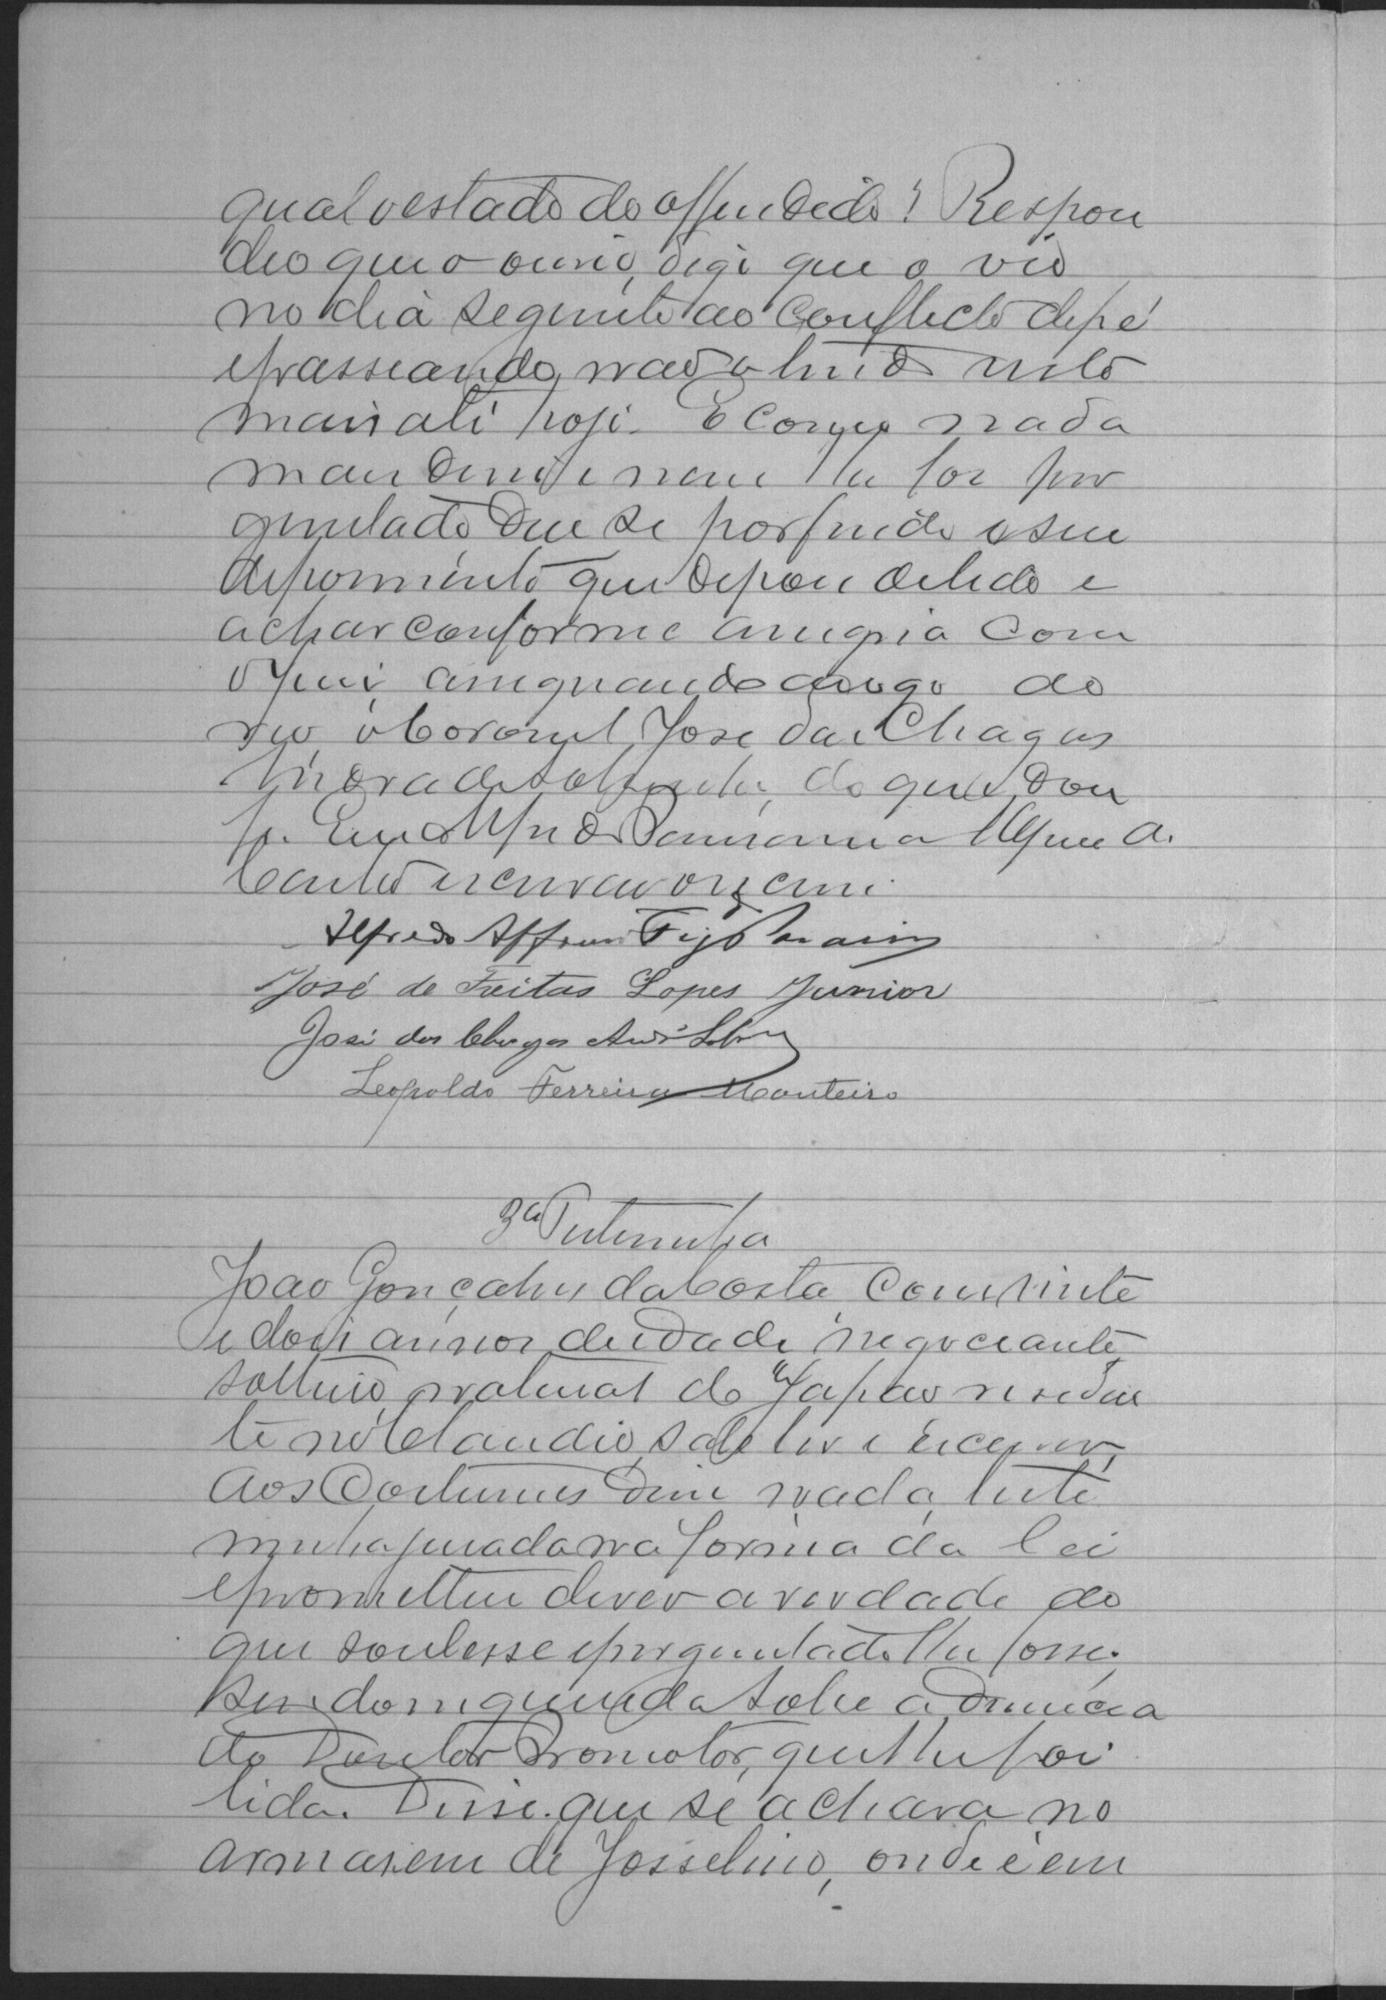 qual o estado do offendido? Respon
deo que o ouvio, digo que o vio
no dia seguinte ao conflicto de pé
e passeando, não o tendo visto
mais até hoje. E como nada
mais disse e nem lhe foi per
guntado deu se por findo o seu
depoimento que depois de lido e
achar conforme assigna com
o Juiz assignando a rogo do
reo, o Coronel José das Chagas
Andrade Sobrinho, do que dou
fé. Eu Alfredo
escrivão o escrevi.
Alfredo Affonso
José de Freitas Lopes Junior
José das Chagas And.e Sobr.o
Leopoldo Ferreira Monteiro
3ª Testemunha
João Gonçalves da Costa, com vinte
e dois annos de idade, negociante,
solteiro, natural do Japão residen
te no Claudio, sabe ler e escrever,
aos costumes disse nada, teste
munha jurada na forma da lei
e prometteu dizer a verdade do
que soubesse e perguntado lhe fosse,
sendo inquirida sobre a denuncia
do Doutor Promotor, que lhe foi
lida. Disse que se achava no
armazem de Josselino, onde é em